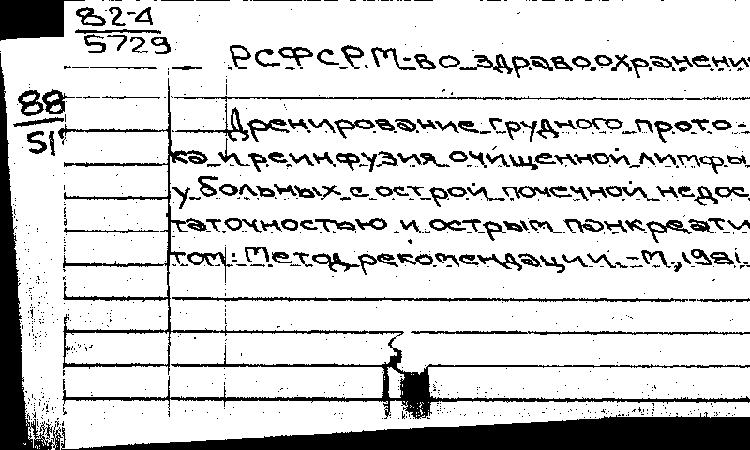 82-4
5729
РСФСР. М-во здравоохранени
88
51
Дренирование грудного прото-
ка и реинфузия очищенной лимфы
у больных с острой почечной недос
таточностью и острым панкреати
том: Метод. рекомендации. - М., 1981.